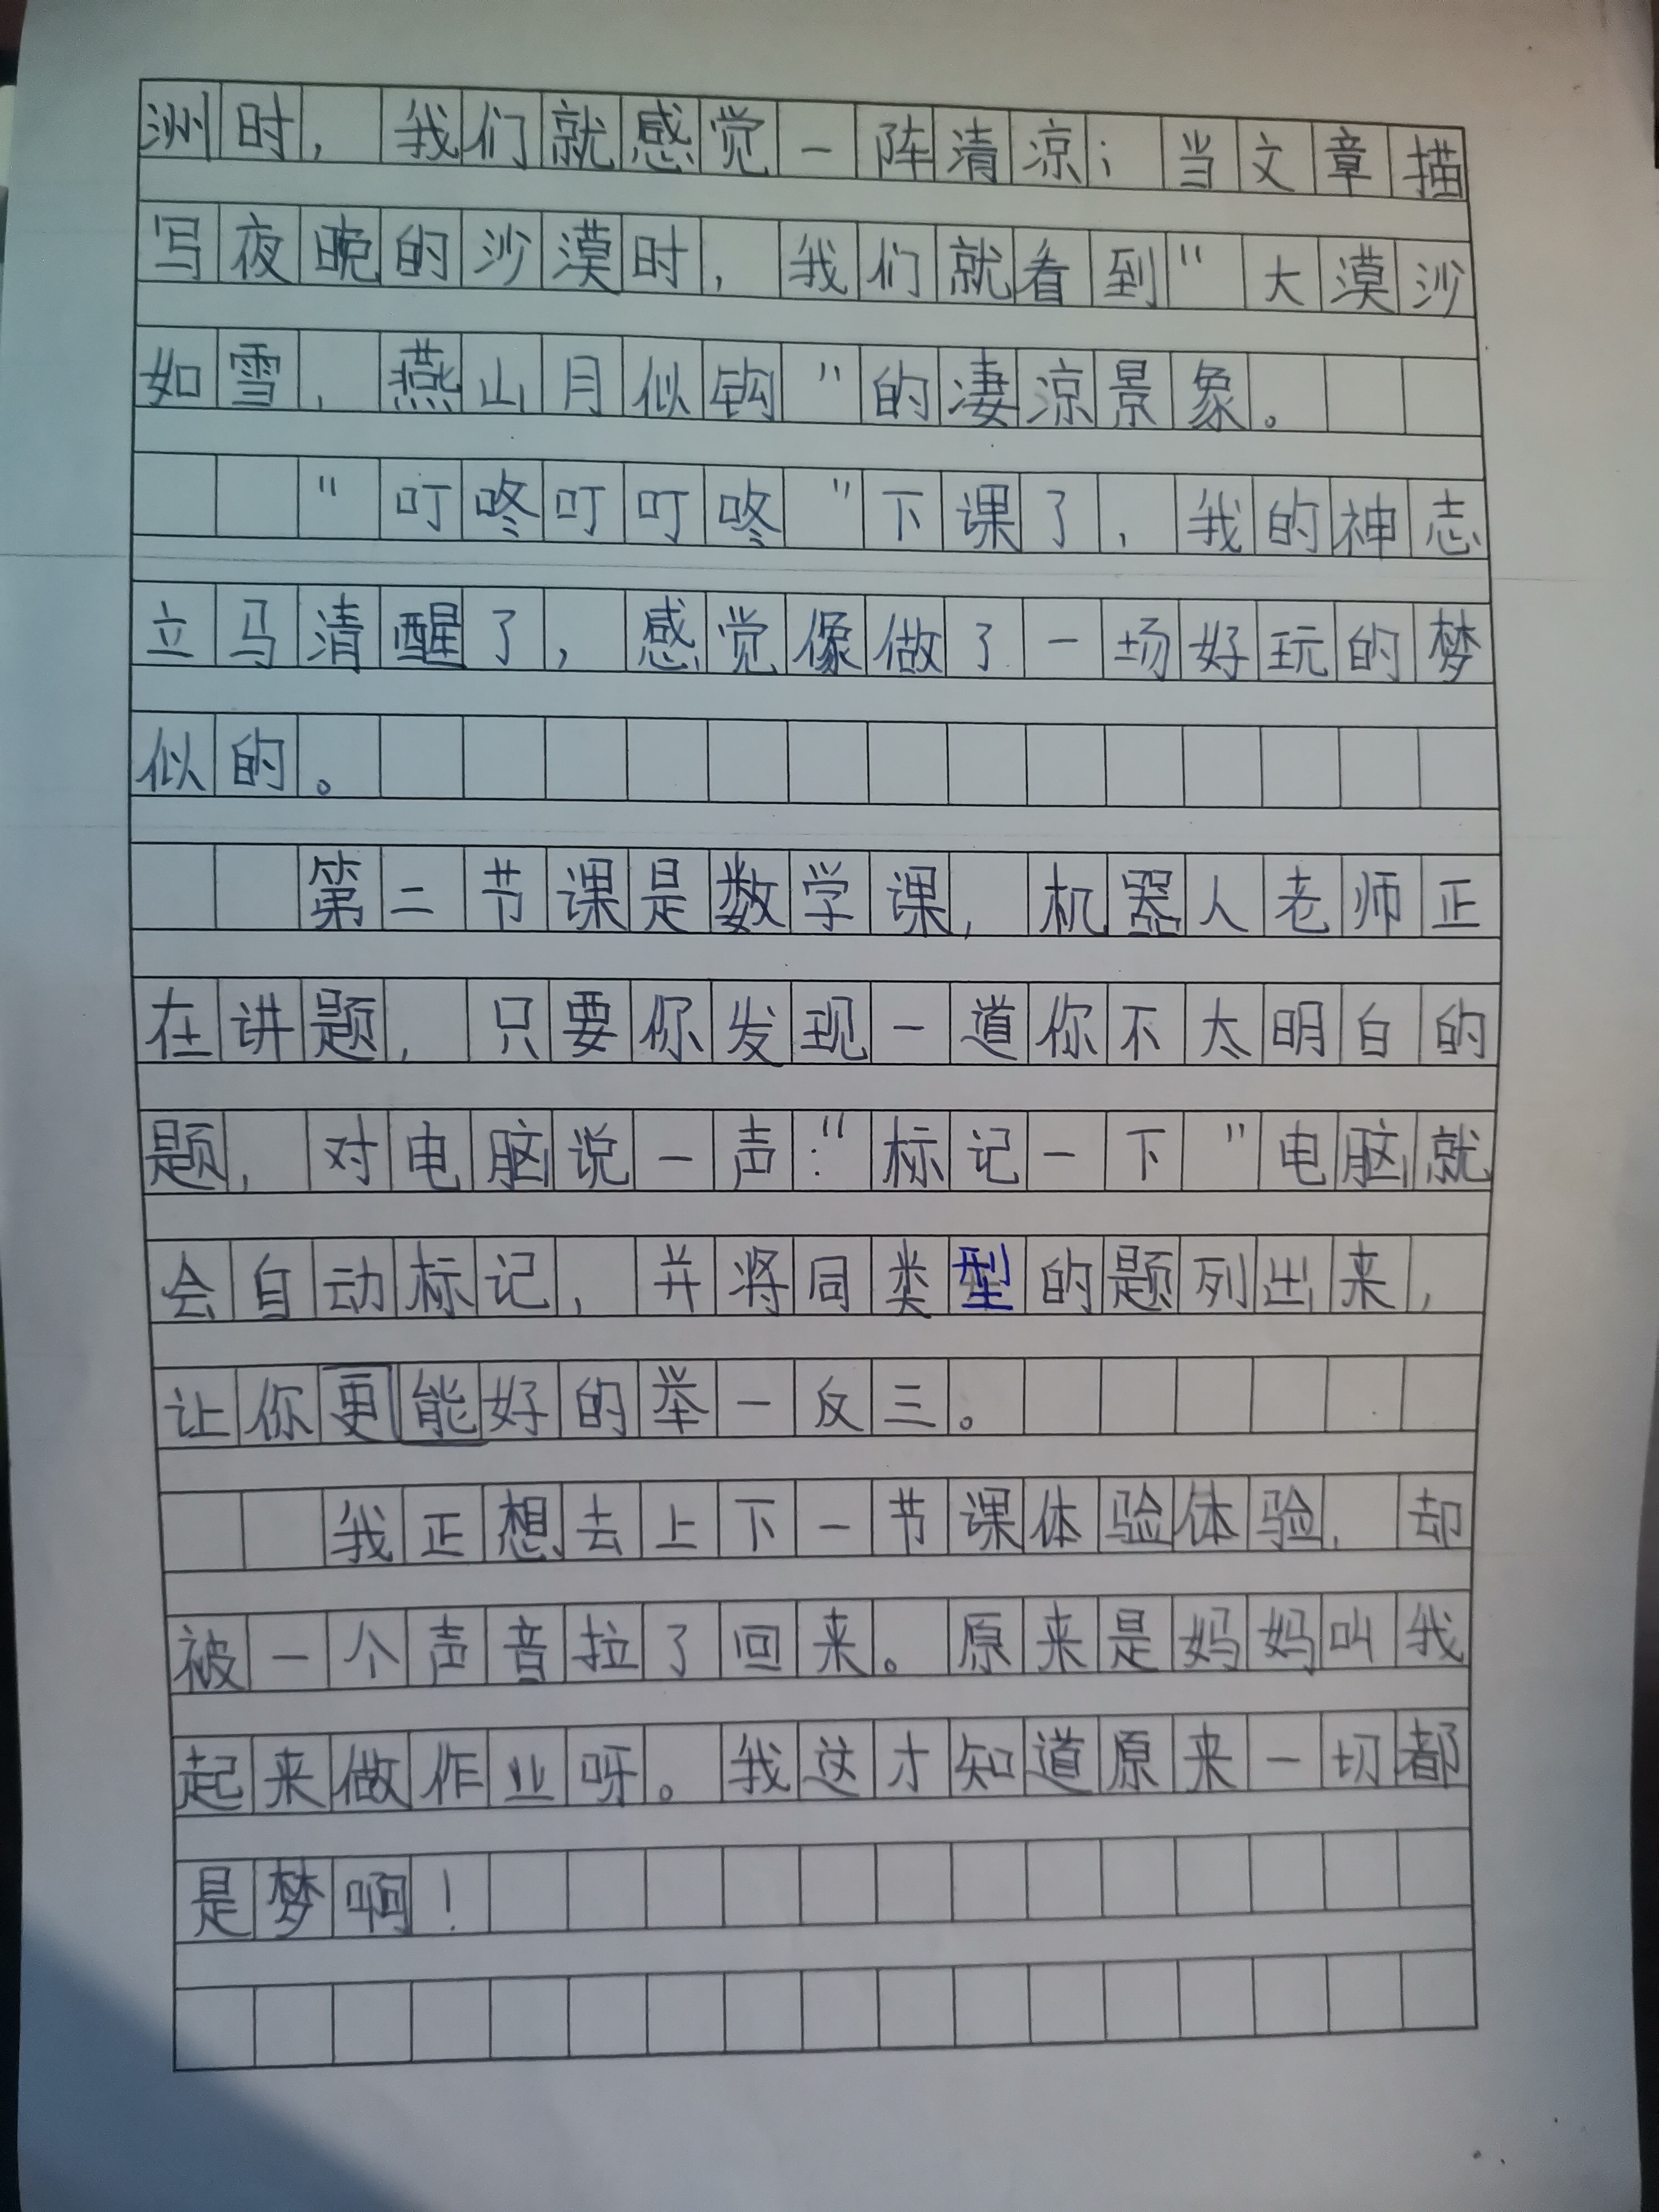 洲时，我们就感觉一阵清凉；当文章描
写夜晚的沙漠时，我们就看到“大漠沙
如雪，燕山月似钩”的凄凉景象。
“叮咚叮叮咚”下课了，我的神志
立马清醒了，感觉像做了一场好玩的梦
似的。
第二节课是数学课，机器人老师正
在讲题，只要你发现一道你不太明白的
题，对电脑说一声：“标记一下”电脑就
会自动标记，并将同类型的题列出来，
让你更能好的举一反三。
我正想去上下一节课体验体验，却
被一个声音拉了回来。原来是妈妈叫我
起来做作业呀。我这才知道原来一切都
是梦啊！